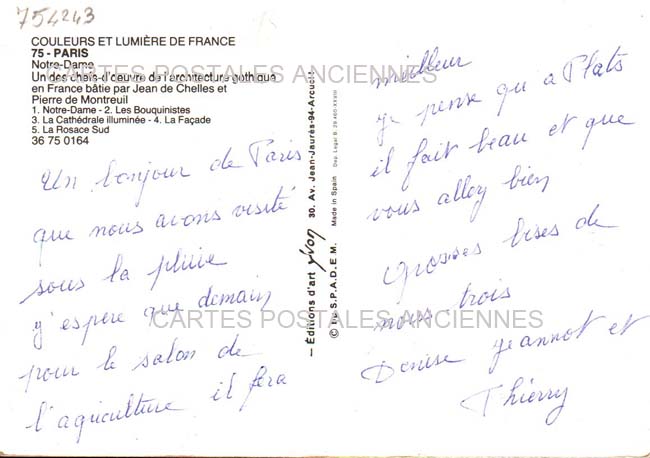 754243
COULEURS ET LUMIÈRE DE FRANCE
75 - PARIS
Notre-Dame
Un des chefs-d'œuvre de l'architecture gothique
en France bâtie par Jean de Chelles et
Pierre de Montreuil
1. Notre-Dame - 2. Les Bouquinistes
3. La Cathédrale illuminée - 4. La Façade
5. La Rosace Sud
36 75 0164
CARTES POSTALES ANCIENNES
Un bonjour de Paris
que nous avons visité
sous la pluie
j'espère que demain
pour le salon de
l'agriculture il fera
— Éditions d'art yvon 30. Av. Jean-Jaurès-94-Arcueil
Made in Spain Dep. Legal B. 29.460-XXIII
© By S.P.A.D.E.M.
meilleur
je pense qu a Plats
il fait beau et que
vous allez bien
Grosses bises de
nous trois
Denise Jeannot et
Thierry
CARTES POSTALES ANCIENNES